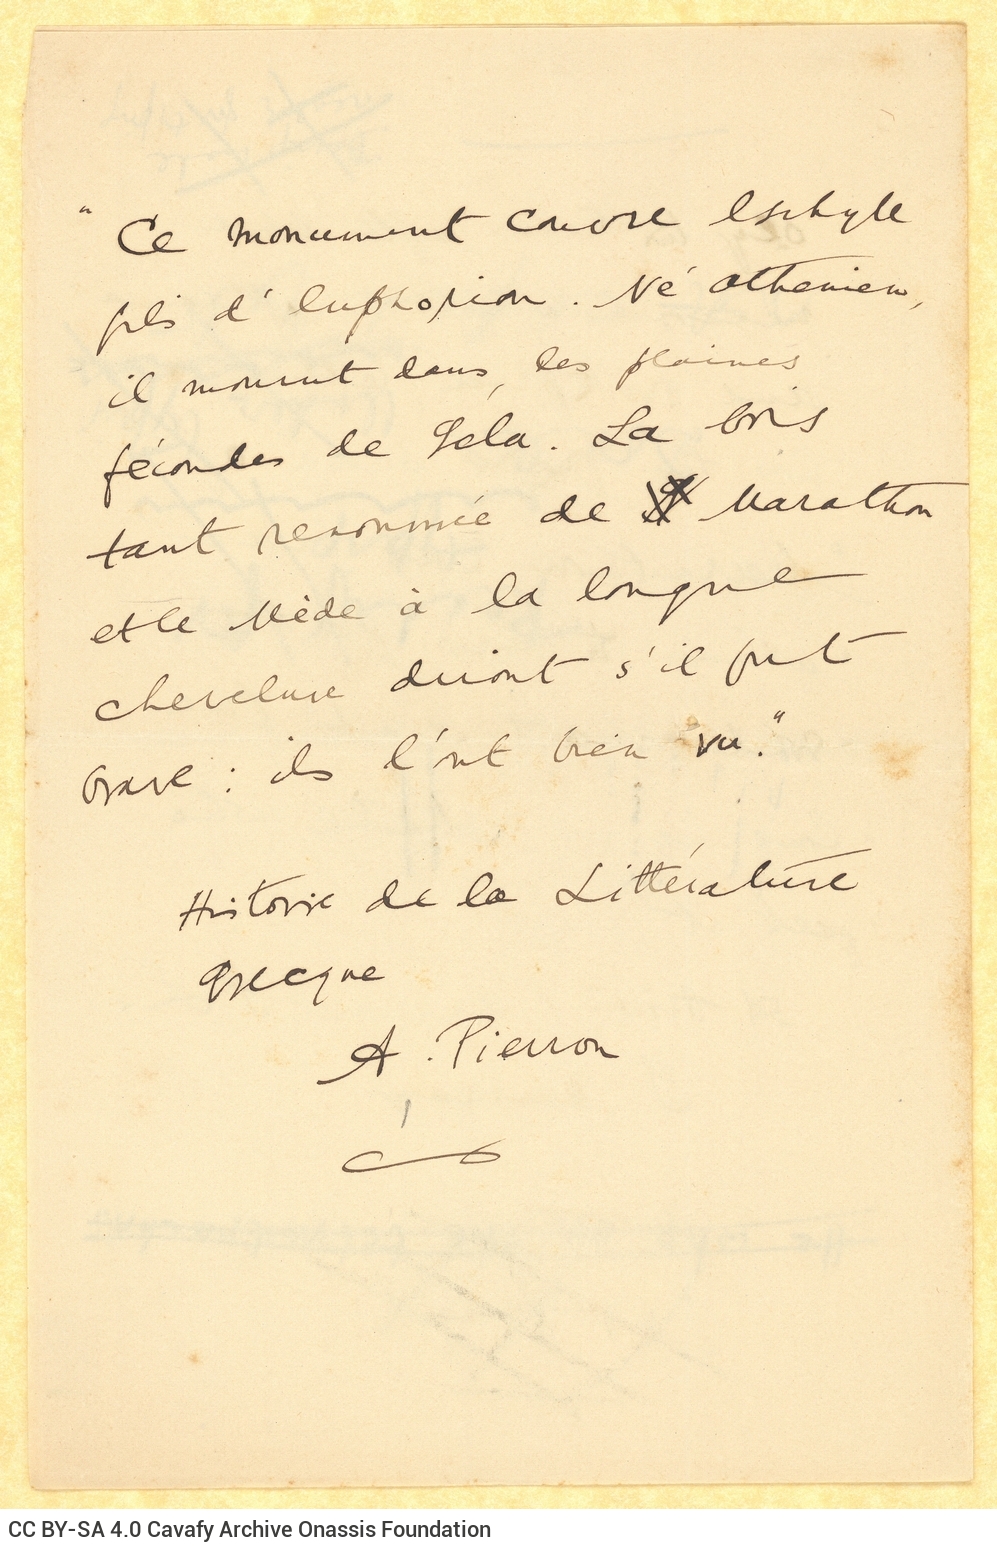 " Ce monument couvre Eschyle
fils d' Euphorion. Né athenien,
il mourut dans, les plaines
fécondes de Géla. La bois
tant renommé de Marathon
et le Mède à la longue
chevelure diront s'il fut
brave : ils l'ont bien vu."
Histoire de la Littérature
grecque
A. Pierron
CC BY-SA 4.0 Cavafy Archive Onassis Foundation